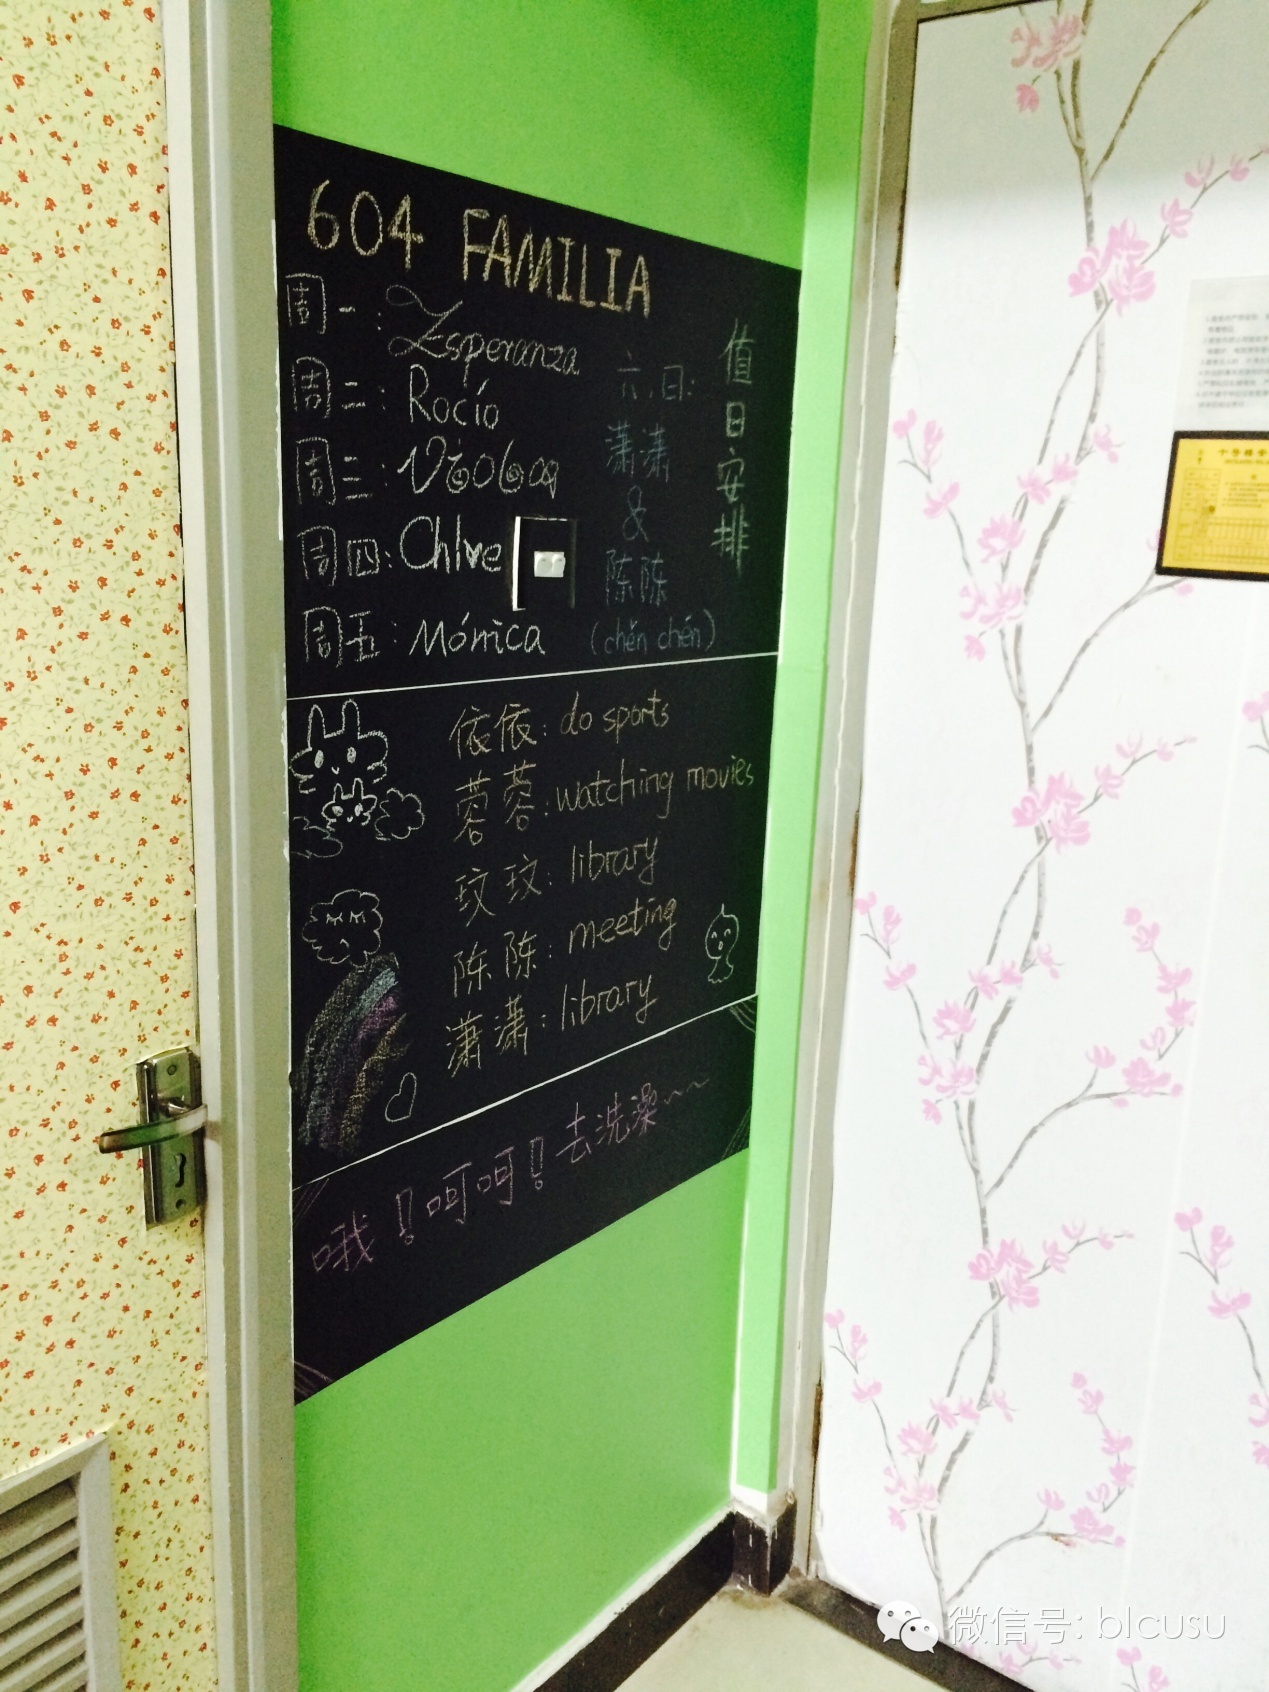 604 FAMILIA
值日安排
周一: Esperanza
周二: Rocío
周三:
周四: Chloe
周五: Mónica
六、日:
潇潇
&
陈陈
(chén chén)
依依: do sports
蓉蓉: watching movies
玟玟: library
陈陈: meeting
潇潇: library
哦!呵呵!去洗澡~~
微信号: blcusu